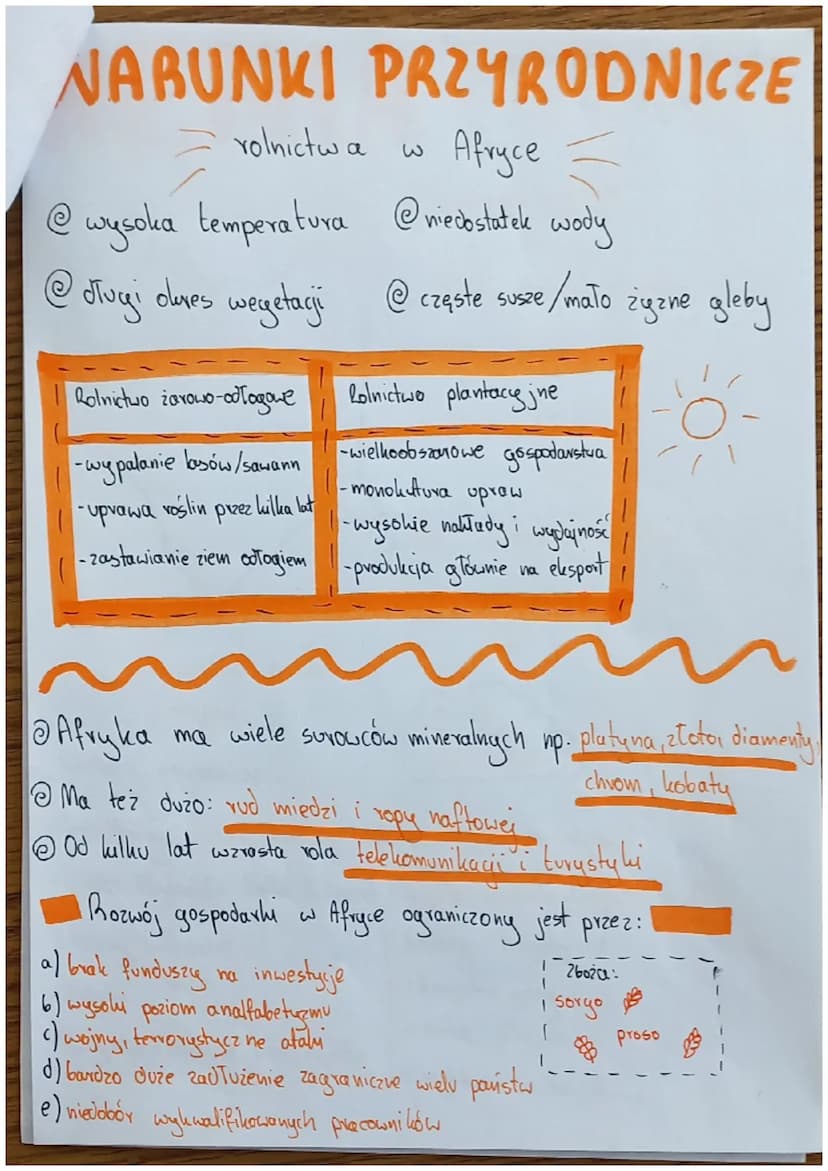 WARUNKI PRZYRODNICZE
rolnictwa w Afryce
@ wysoka temperatura @ niedostatek wody
@ długi okres wegetacji @ częste susze/mało żyzne gleby
Rolnictwo żarowo-odłogowe
-wypalanie lasów/sawann
-uprawa roślin przez kilka lat
-zastawianie ziem odłogiem
Rolnictwo plantacyjne
-wielkoobszarowe gospodarstwa
-monokultura upraw
-wysokie nakłady i wydajność
-produkcja głównie na eksport
@ Afryka ma wiele surowców mineralnych np. platyna, złoto, diamenty,
chrom, kobaty
@ Ma też dużo: rud miedzi i ropy naftowej
@ Od kilku lat wzrosta rola telekomunikacji i turystyki
Rozwój gospodarki w Afryce ograniczony jest przez:
a) brak funduszy na inwestycje
b) wysoki poziom analfabetyzmu
c) wojny, terrorystyczne ataki
d) bardzo duże zadłużenie zagraniczne wielu państw
e) niedobór wykwalifikowanych pracowników
Zboża:
sorgo
proso